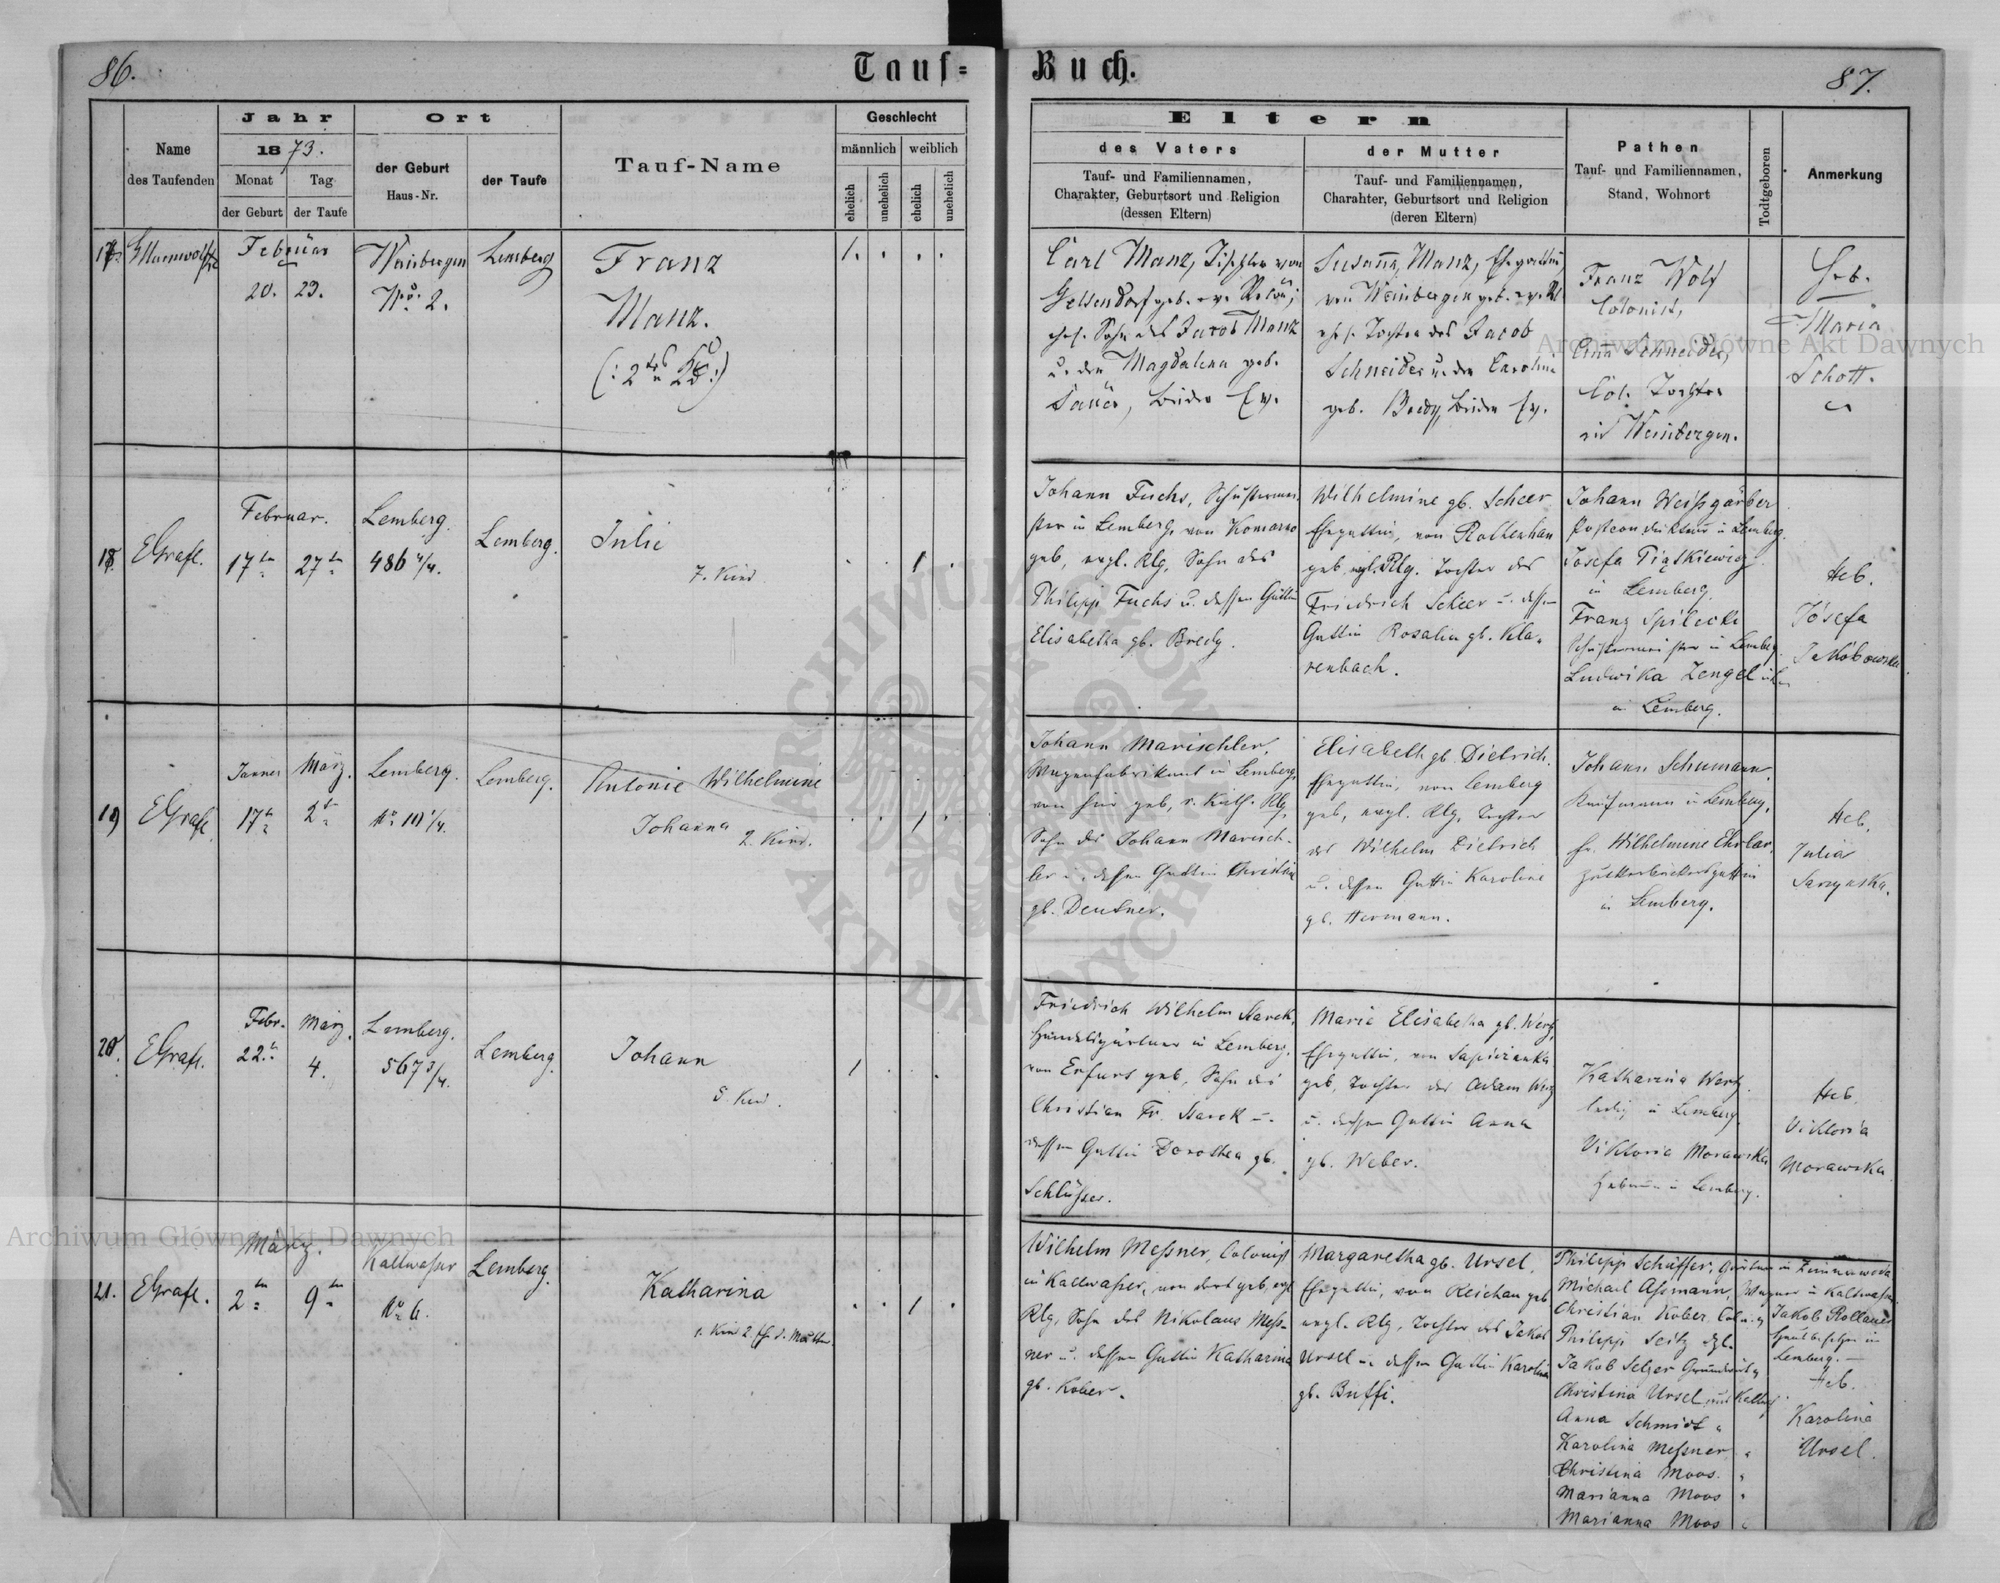 86.
Tauf=
Buch.
87.
Name
des Taufenden
Jahr
1873.
Monat
Tag
der Geburt
der Taufe
Ort
der Geburt
Haus-Nr.
der Taufe
Tauf-Name
Geschlecht
männlich
weiblich
ehelich
unehelich
ehelich
unehelich
Eltern
des Vaters
Tauf- und Familiennamen,
Charakter, Geburtsort und Religion
(dessen Eltern)
der Mutter
Tauf- und Familiennamen,
Charahter, Geburtsort und Religion
(deren Eltern)
Pathen
Tauf- und Familiennamen,
Stand, Wohnort
Todtgeboren
Anmerkung
17.
Februar
20. 23.
Weinbergen
No. 2.
Lemberg
Franz
Manz.
1.
Carl Manz, Tischler von
Gelsendorf geb.
ehel. Sohn des Jacob Manz
u. der Magdalena geb.
Sauer, beide Ev.
Susanna Manz, Ehegattin,
von Weinbergen geb.
ehel. Tochter des Jacob
Schneider u. der Carolina
geb. Bredy, beide Ev.
Franz Wolf
Colonist,
Schneider,
Col. Tochter
Weinbergen.
Heb.
Maria
Schott.
18.
EGrafl.
Februar.
17te 27te
Lemberg.
486 4/4.
Lemberg.
Julie
7. Kind
1
Johann Fuchs, Schuhmachermei-
ster in Lemberg, von Komarno
geb, evgl. Rlg, Sohn des
Philipp Fuchs u. dessen Gattin
Elisabetha gb. Bredy.
Wilhelmine gb. Scheer
Ehegattin, von Rottenhan
geb, evgl. Rlg. Tochter des
Friedrich Scheer u. dessen
Gattin Rosalia gb. Kla-
renbach.
Johann Weißgärber
Postconducteur in Lemberg.
Josefa Piątkiewicz
in Lemberg.
Franz Spilecki
Schuhmachermeister in Lemberg
Ludwika Zengel
in Lemberg.
Heb.
Josefa
Jakóbowska
19
EGrafl.
Janner März.
17te 2te
Lemberg.
No 111 1/4.
Lemberg.
Antonie Wilhelmine
Johanna
2. Kind.
1
Johann Marischler,
Wagenfabrikant in Lemberg,
von hier geb, r. kath. Rlg,
Sohn des Johann Marisch-
ler u. dessen Gattin Christine
gb. Deutner.
Elisabeth gb. Dietrich.
Ehegattin, von Lemberg
geb, evgl. Rlg, Tochter
des Wilhelm Dietrich
u. dessen Gattin Karoline
gb. Hermann.
Johann Schumann.
Kaufmann in Lemberg,
fr. Wilhelmine Ehrlar,
Zuckerbäckersgattin
in Lemberg.
Heb.
Julia
Sarzynska.
20.
EGrafl.
Febr. März.
22te 4.
Lemberg.
567 3/4.
Lemberg.
Johann
5. Kind.
1
Friedrich Wilhelm Starck,
Handelsgärtner in Lemberg,
von Erfurt geb, Sohn des
Christian Fr. Starck u.
dessen Gattin Dorothea gb.
Schlüßer.
Marie Elisabetha gb. Wertz,
Ehegattin, von Sapieżanka
geb, Tochter des Adam Wertz
u. dessen Gattin Anna
gb. Weber.
Katharina Wertz
ledig in Lemberg.
Viktoria Morawska
Hebamme in Lemberg.
Heb.
Viktoria
Morawska
21.
EGrafl.
März.
2te 9te
Kaltwasser
No 6.
Lemberg.
Katharina
1. Kind 2. Ehe d. Mutter
1
Wilhelm Meßner, Colonist
in Kaltwasser, von dort geb, evgl.
Rlg, Sohn des Nikolaus Meß-
ner u. dessen Gattin Katharina
gb. Kober.
Margaretha gb. Ursel,
Ehegattin, von Reichau geb
evgl. Rlg, Tochter des Jakob
Ursel u. dessen Gattin Karolina
gb. Buffi.
Philipp Schäffer, in Zimnawoda
Michael Aßmann, Wagner in Kaltwasser
Christian Kober, Col.
Philipp Seitz dgl.
Jakob Selzer
Christina Ursel
Anna Schmidt "
Karolina Meßner "
Christina Moos. "
Marianna Moos "
Marianna Moos "
Jakob Rollauer
Hausbesitzer in
Lemberg. —
Heb.
Karolina
Ursel.
Archiwum Główne Akt Dawnych
Archiwum Główne Akt Dawnych
ARCHIWUM GŁÓWNE
AKT DAWNYCH